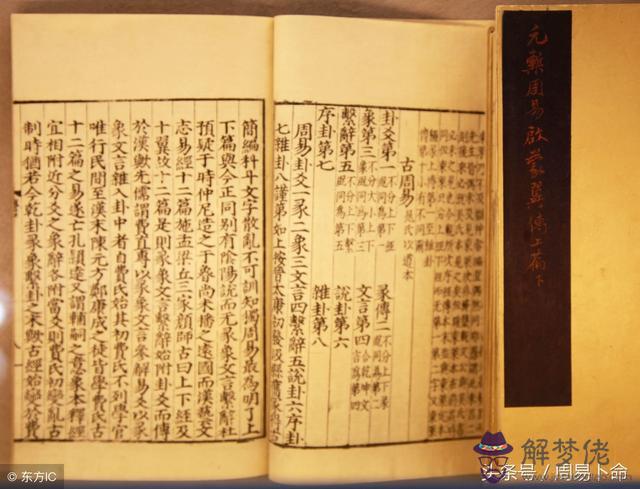 元槧周易啟蒙翼傳上篇下
古周易 晁氏以道本
卦爻第一 不分上下經
彖傳二 不分上下彖 觀同為第二
象第三 不分大小上下 觀同為第三
文言第四 合乾坤文言為第四
繫辭第五 不分上下繫 觀同為第五
說卦第六
序卦第七
雜卦第八
周易卦爻一彖二象三文言四繫辭五說卦六序卦
七雜卦八謹第如上按晉太康初發汲縣舊冢得古
簡編科斗文字散亂不可訓知獨周易最為明了上
下篇與今正同別有陰陽說而无彖象文言繫辭杜
預疑于時仲尼造之于魯尚未播之遠國而漢藝文
志易經十二篇施孟梁丘三家顏師古曰上下經及
十翼故十二篇是則彖象文言繫辭始附卦爻而傳
於漢歟先儒謂費直專以彖象文言參解易爻以彖
象文言雜入卦中者自費氏始其初費氏不列學官
唯行民間至漢末陳元方鄭康成之徒皆學費氏古
十二篇之易遂亡孔穎達又謂輔嗣之意象本釋經
宜相附近分爻之象辭各附當爻則費氏初變亂古
制時猶若今乾卦彖象繫卦之末歟古經始變於費
© 东方IC
解梦佬
头条号／周易卜命